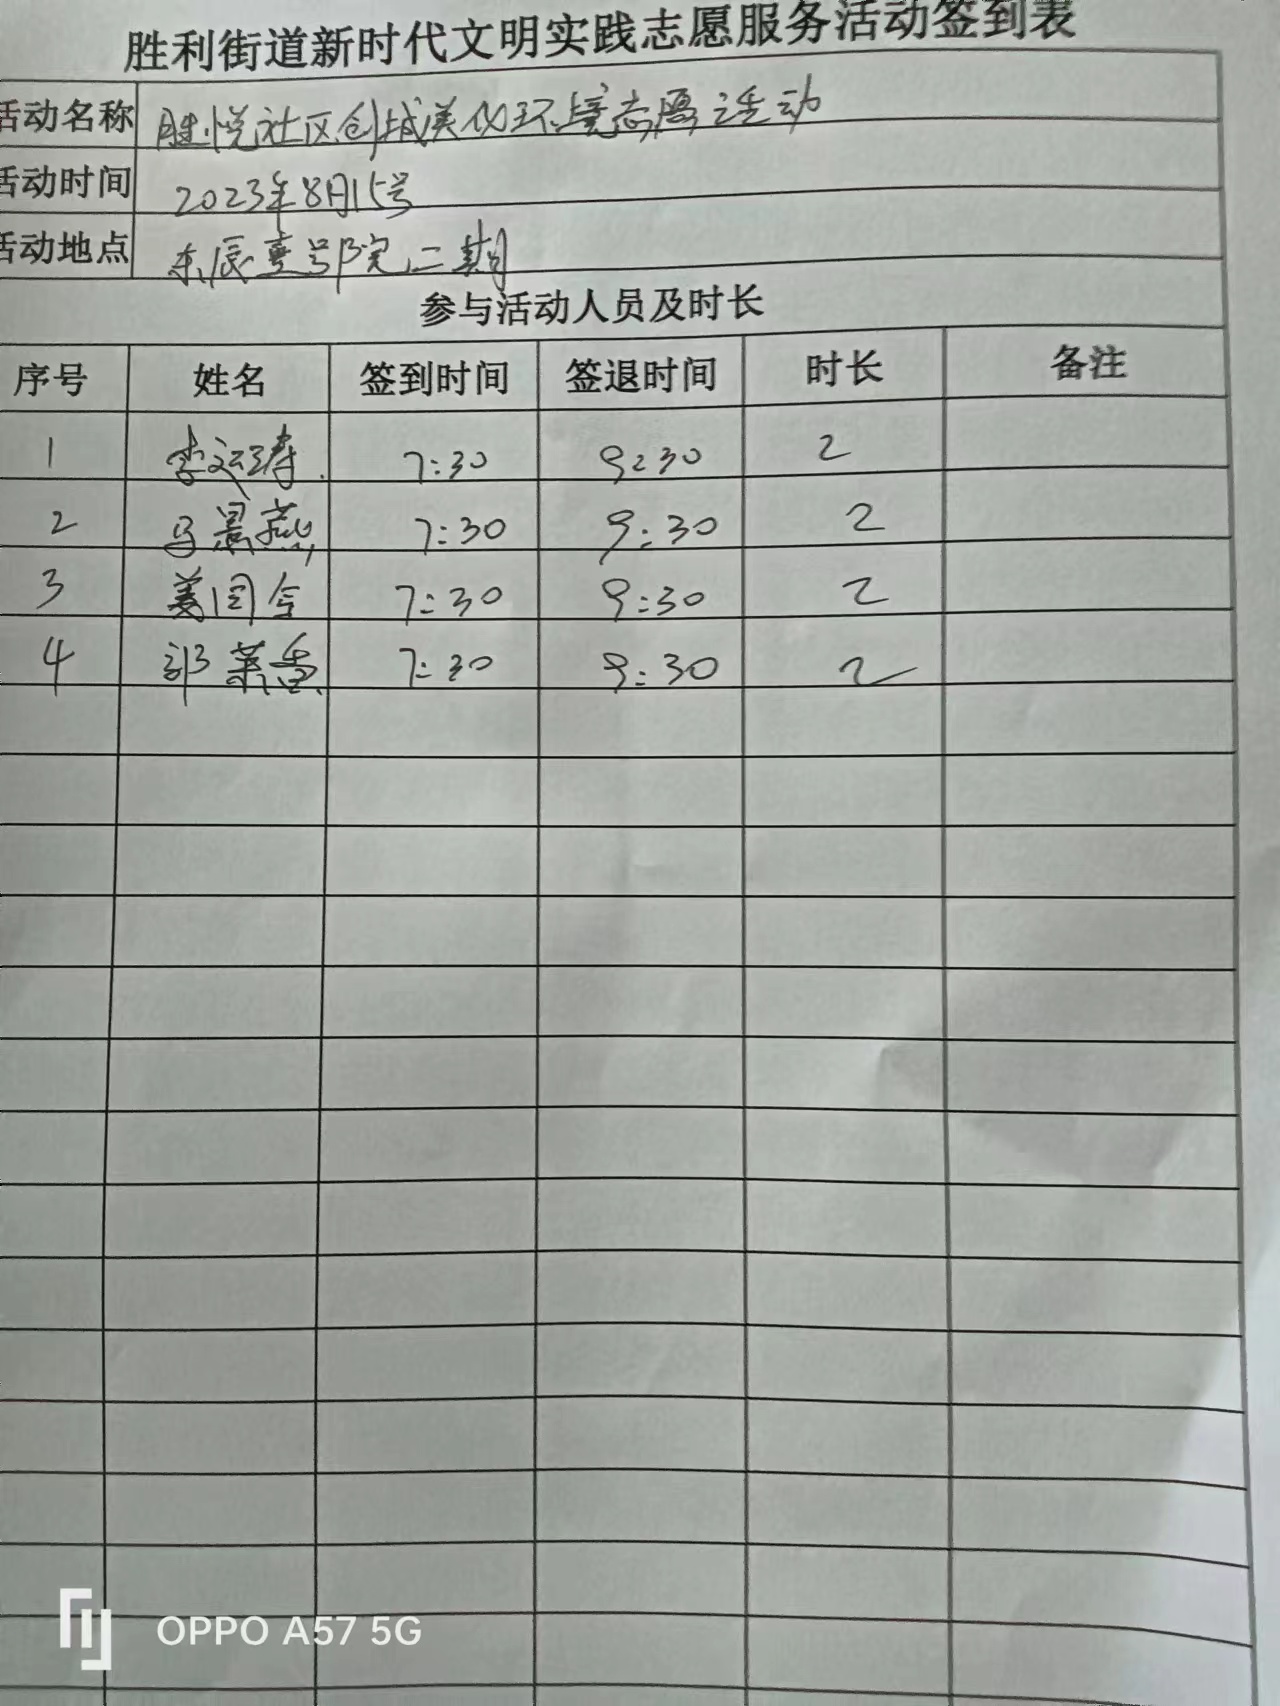 胜利街道新时代文明实践志愿服务活动签到表
活动名称 胜悦社区创城美化环境志愿活动
活动时间 2023年8月15号
活动地点 东辰壹号院二期
参与活动人员及时长
序号 姓名 签到时间 签退时间 时长 备注
1 李 7:30 9:30 2
2 马景燕 7:30 9:30 2
3 姜国金 7:30 9:30 2
4 郭 香 7:30 9:30 2
OPPO A57 5G